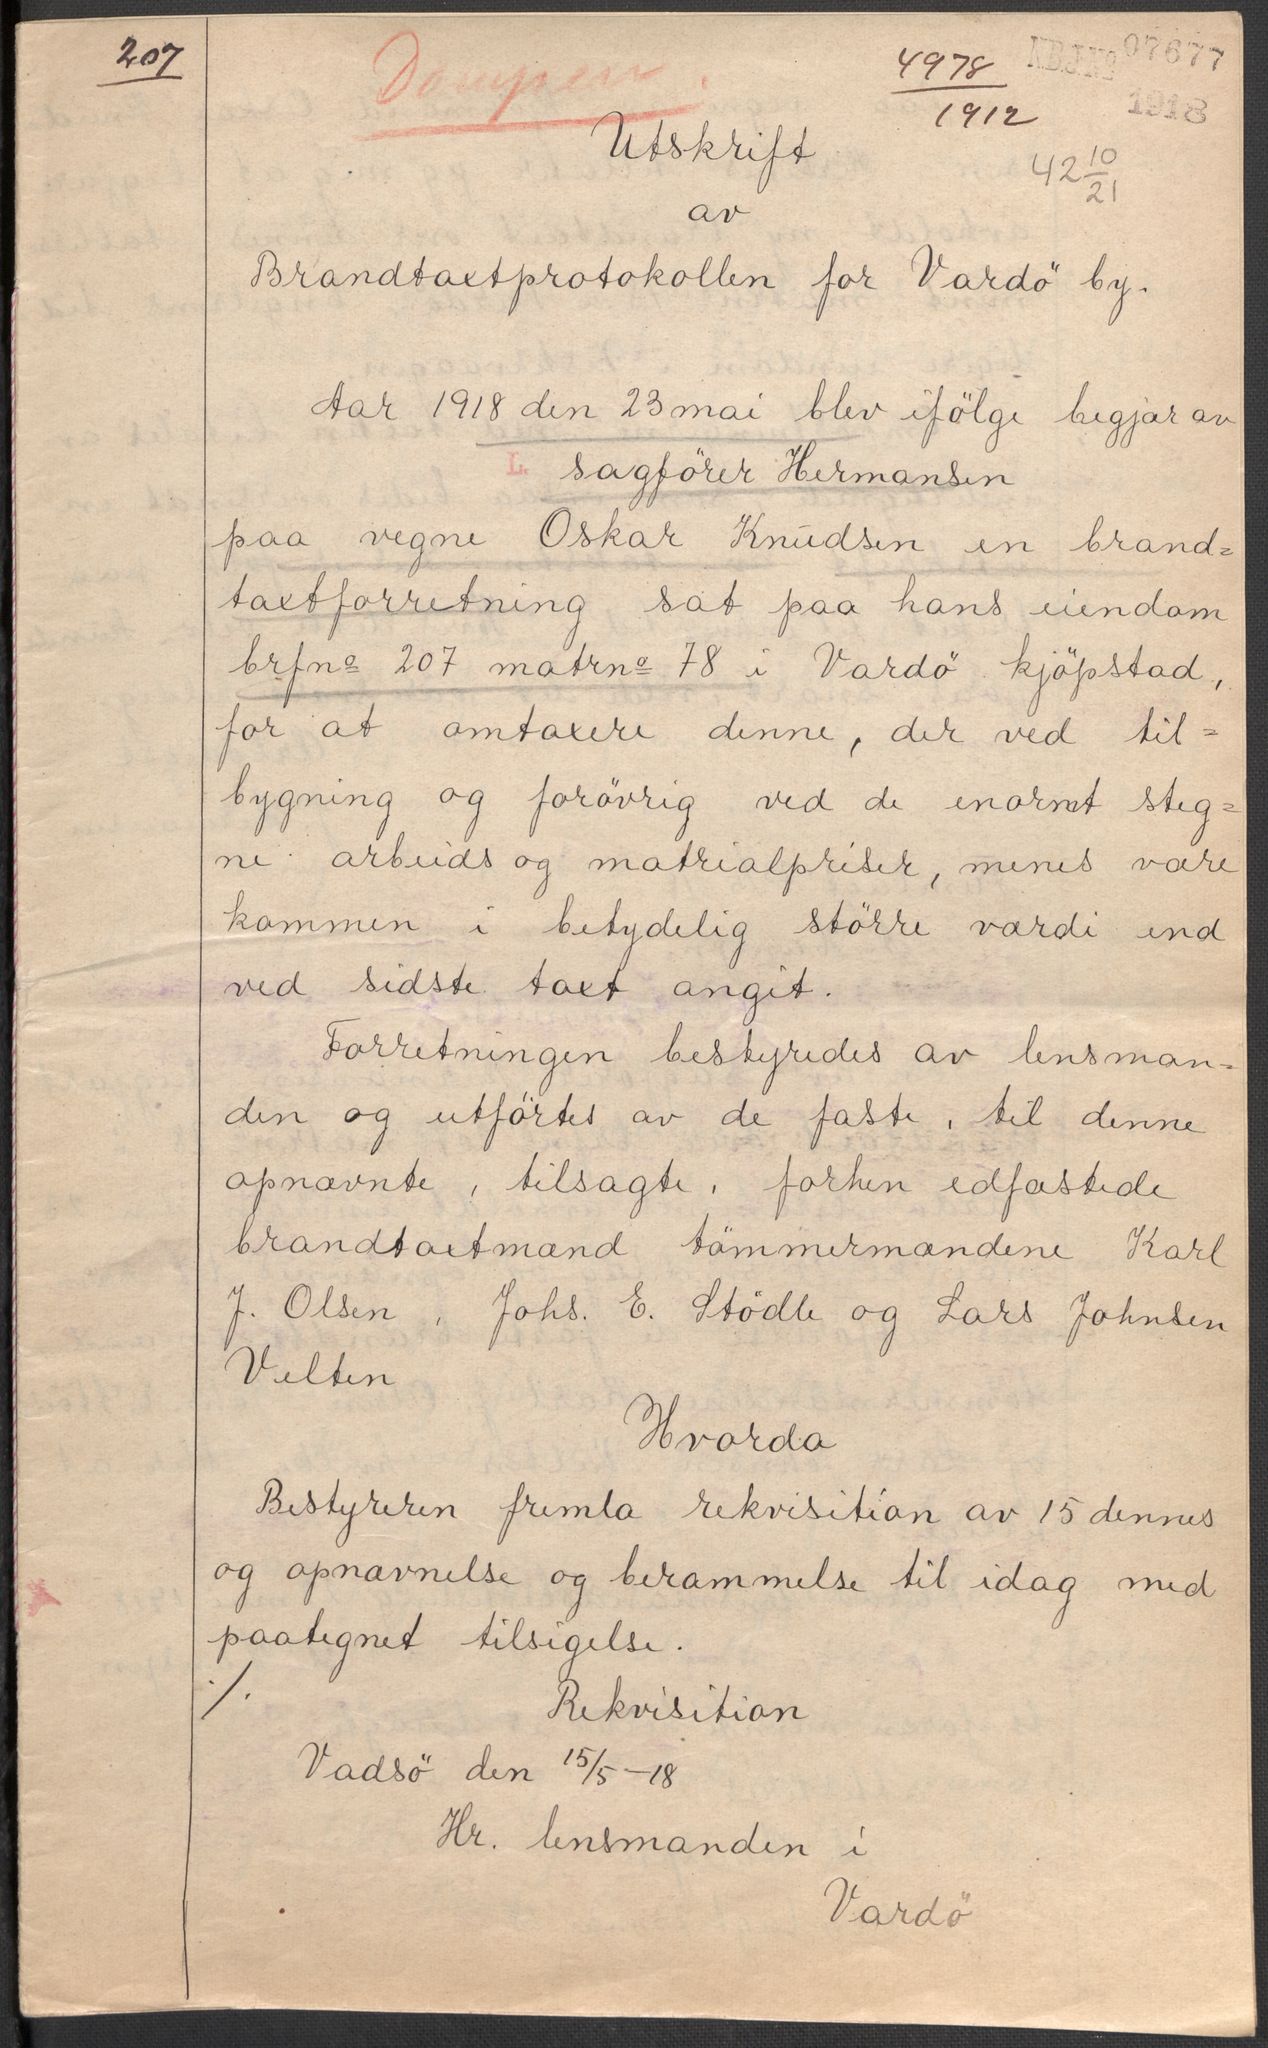 207
4978
1912
NBJNo 07677
1918
42 10/21
Utskrift
av
Brandtaxtprotokollen for Vardö by.
Aar 1918 den 23 mai blev ifölge begjær av
L. sagförer Hermansen
paa vegne Oskar Knudsen en brand=
taxtforretning sat paa hans eiendom
brfno 207 matrno 78 i Vardö kjöpstad,
for at omtaxere denne, der ved til=
bygning og forövrig ved de enormt steg=
ne arbeids og matrialpriser, menes være
kommen i betydelig större værdi end
ved sidste taxt angit.
Forretningen bestyredes av lensman=
den og utförtes av de faste, til denne
opnævnte, tilsagte, forhen edfæstede
brandtaxtmænd tömmermændene Karl
J. Olsen, Johs. E. Stödle og Lars Johnsen
Velten
Hvorda
Bestyreren fremla rekvisition av 15 dennes
og opnævnelse og berammelse til idag med
paategnet tilsigelse.
./.
Rekvisition
Vadsö den 15/5-18
Hr. lensmanden i
Vardö